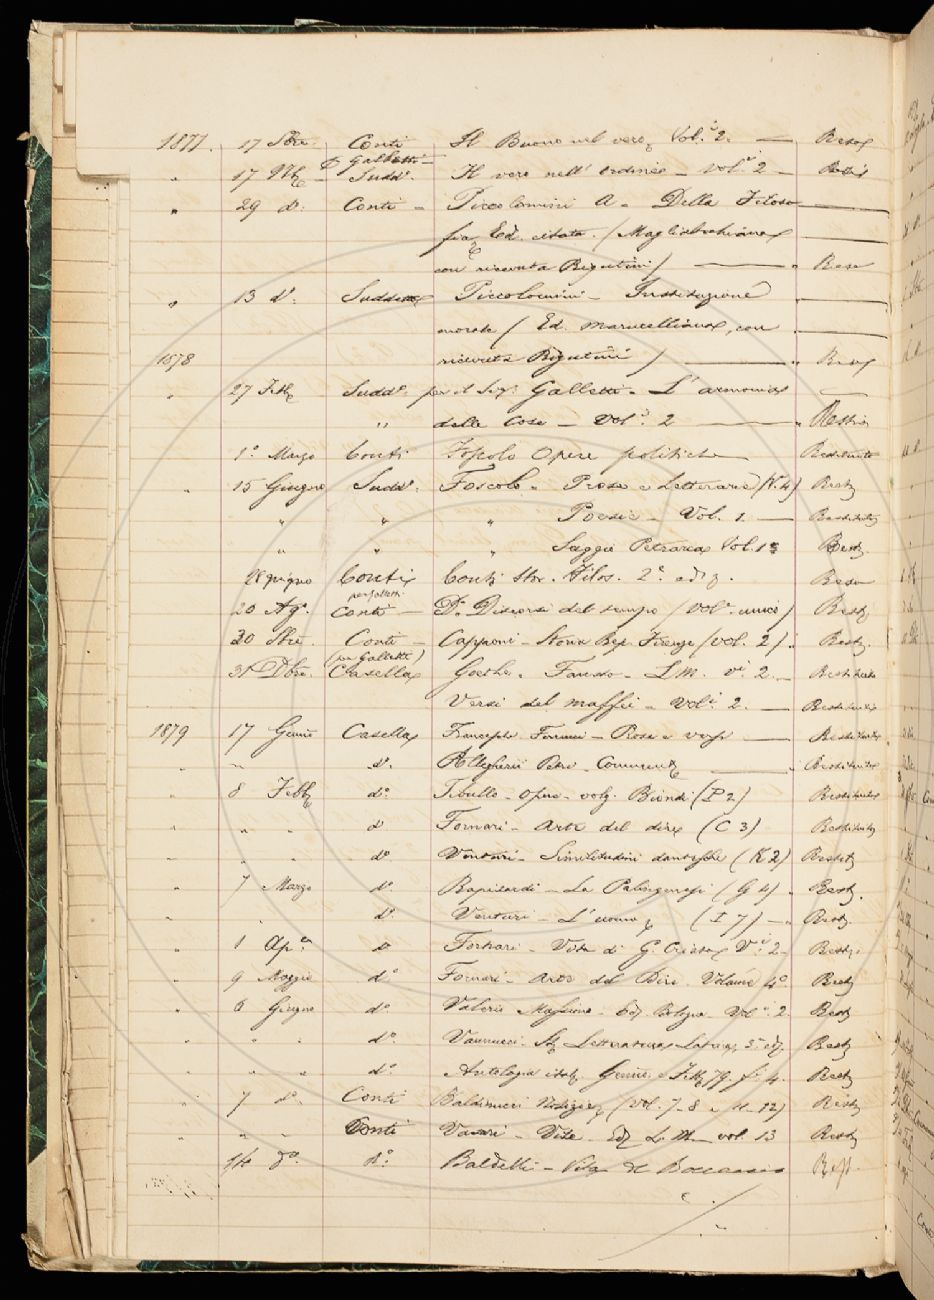 1877. 17 Sbre. Conti Il Buono nel vero, Vol.i 2. — Reso
" 17 9bre Sudd.o Il vero nell' ordine — vol.i 2 — Restit
per Galletti
" 29 d.o Conti — Piccolomini A. Della Filoso
fia, Ed. citata. (Magliabechiana
con ricevuta Rigutini) — Reso
" 13 d.o Suddetto Piccolomini — Instituzione
morale (Ed. Marucelliana, con
1878 ricevuta Rigutini) — Reso
" 27 Febb Sudd.o per il Sig. Galletti. L'armonia
" delle Cose — Vol.i 2 — Restit
1.o Marzo Conti Foscolo Opere politiche — Restituito
" 15 Giugno Sudd.o Foscolo. Prose e Letterarie (V. 4) Rest.
" " " Poesie — Vol. 1. — Restituito
" " " Saggi Petrarca Vol. 1 Rest.
28 giugno Conti Conti Stor. Filos. 2.a ediz. Reso
per Galletti
20 Ag.o Conti — D.o Discorsi del tempo (Vol.e unico) Rest.
30 Sbre. Conti — Capponi — Storia Rep. Firenze (vol. 2) Rest.
(per Galletti)
31 Dbre. Casella Goethe. Fausto — L.M. v.i 2. — Restituito
Versi del Maffei — Vol.i 2. — Restituito
1879 17 Genn.o Casella Fornari — Prose e versi — Restituito
" " d.o Allegherii Petri — Comment. — Restituito
" 8 Febb. d.o Tibullo — Opere — volg. Biondi (P 2) Restituito
" " " d.o Fornari — Arte del dire (C 3) Restituito
" " " d.o Venturi — Similitudini dantesche (K 2) Restit.
" 7 Marzo d.o Rapisardi — La Palingenesi (G 4) Rest.
" " d.o Venturi — L'uomo (I 7) — Rest.
" 1 Ap.le d.o Fornari — Vita di G. Cristo V.i 2 — Rest.
" 9 Maggio d.o Fornari — Arte del Dire. Volume 4.o Rest.
" 6 Giugno d.o Valerio Massimo — Ediz. Bologna Vol.i 2. Rest.
" " " d.o Vannucci. St. Letteratura Latina, 3.a ediz. Rest.
" " " d.o Antologia ital. Genn.o e Febb. 79. f.i 4. Rest.
" 7 d.o Conti Baldinucci Notizie (Vol. 7-8 e 11-12) Rest.
" " " Conti Vasari — Vite — Ediz. L. M. — vol. 13 Rest.
14 d.o d.o Baldelli — Vita di Boccaccio Rest.